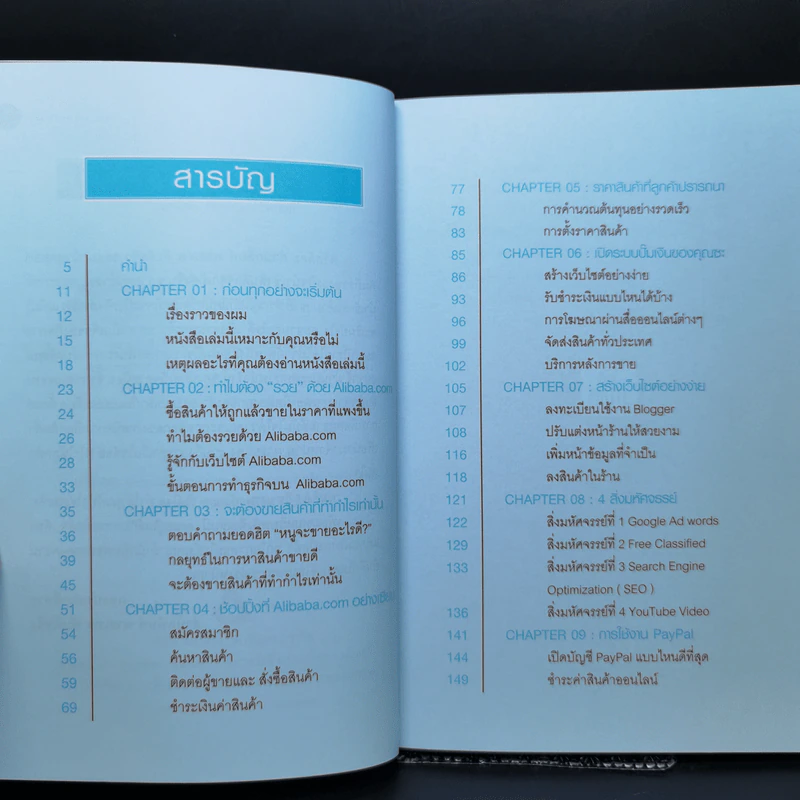 สารบัญ
5 คำนำ
11 CHAPTER 01 : ก่อนทุกอย่างจะเริ่มต้น
12 เรื่องราวของผม
15 หนังสือเล่มนี้เหมาะกับคุณหรือไม่
18 เหตุผลอะไรที่คุณต้องอ่านหนังสือเล่มนี้
23 CHAPTER 02 : ทำไมต้อง “รวย” ด้วย Alibaba.com
24 ซื้อสินค้าให้ถูกแล้วขายในราคาที่แพงขึ้น
26 ทำไมต้องรวยด้วย Alibaba.com
28 รู้จักกับเว็บไซต์ Alibaba.com
33 ขั้นตอนการทำธุรกิจบน Alibaba.com
35 CHAPTER 03 : จะต้องขายสินค้าที่ทำกำไรเท่านั้น
36 ตอบคำถามยอดฮิต “หนูจะขายอะไรดี?”
39 กลยุทธ์ในการหาสินค้าขายดี
45 จะต้องขายสินค้าที่ทำกำไรเท่านั้น
51 CHAPTER 04 : ช้อปปิ้งที่ Alibaba.com
54 สมัครสมาชิก
56 ค้นหาสินค้า
59 ติดต่อผู้ขายและ สั่งซื้อสินค้า
69 ชำระเงินค่าสินค้า
77 CHAPTER 05 : ราคาสินค้าที่ลูกค้าปรารถนา
78 การคำนวณต้นทุนอย่างรวดเร็ว
83 การตั้งราคาสินค้า
85 CHAPTER 06 : เปิดระบบปั๊มเงินของคุณซะ
86 สร้างเว็บไซต์อย่างง่าย
93 รับชำระเงินแบบไหนได้บ้าง
96 การโฆษณาผ่านสื่อออนไลน์ต่างๆ
99 จัดส่งสินค้าทั่วประเทศ
102 บริการหลังการขาย
105 CHAPTER 07 : สร้างเว็บไซต์อย่างง่าย
107 ลงทะเบียนใช้งาน Blogger
108 ปรับแต่งหน้าร้านให้สวยงาม
116 เพิ่มหน้าข้อมูลที่จำเป็น
118 ลงสินค้าในร้าน
121 CHAPTER 08 : 4 สิ่งมหัศจรรย์
122 สิ่งมหัศจรรย์ที่ 1 Google Ad words
129 สิ่งมหัศจรรย์ที่ 2 Free Classified
133 สิ่งมหัศจรรย์ที่ 3 Search Engine
Optimization ( SEO )
136 สิ่งมหัศจรรย์ที่ 4 YouTube Video
141 CHAPTER 09 : การใช้งาน PayPal
144 เปิดบัญชี PayPal แบบไหนดีที่สุด
149 ชำระค่าสินค้าออนไลน์